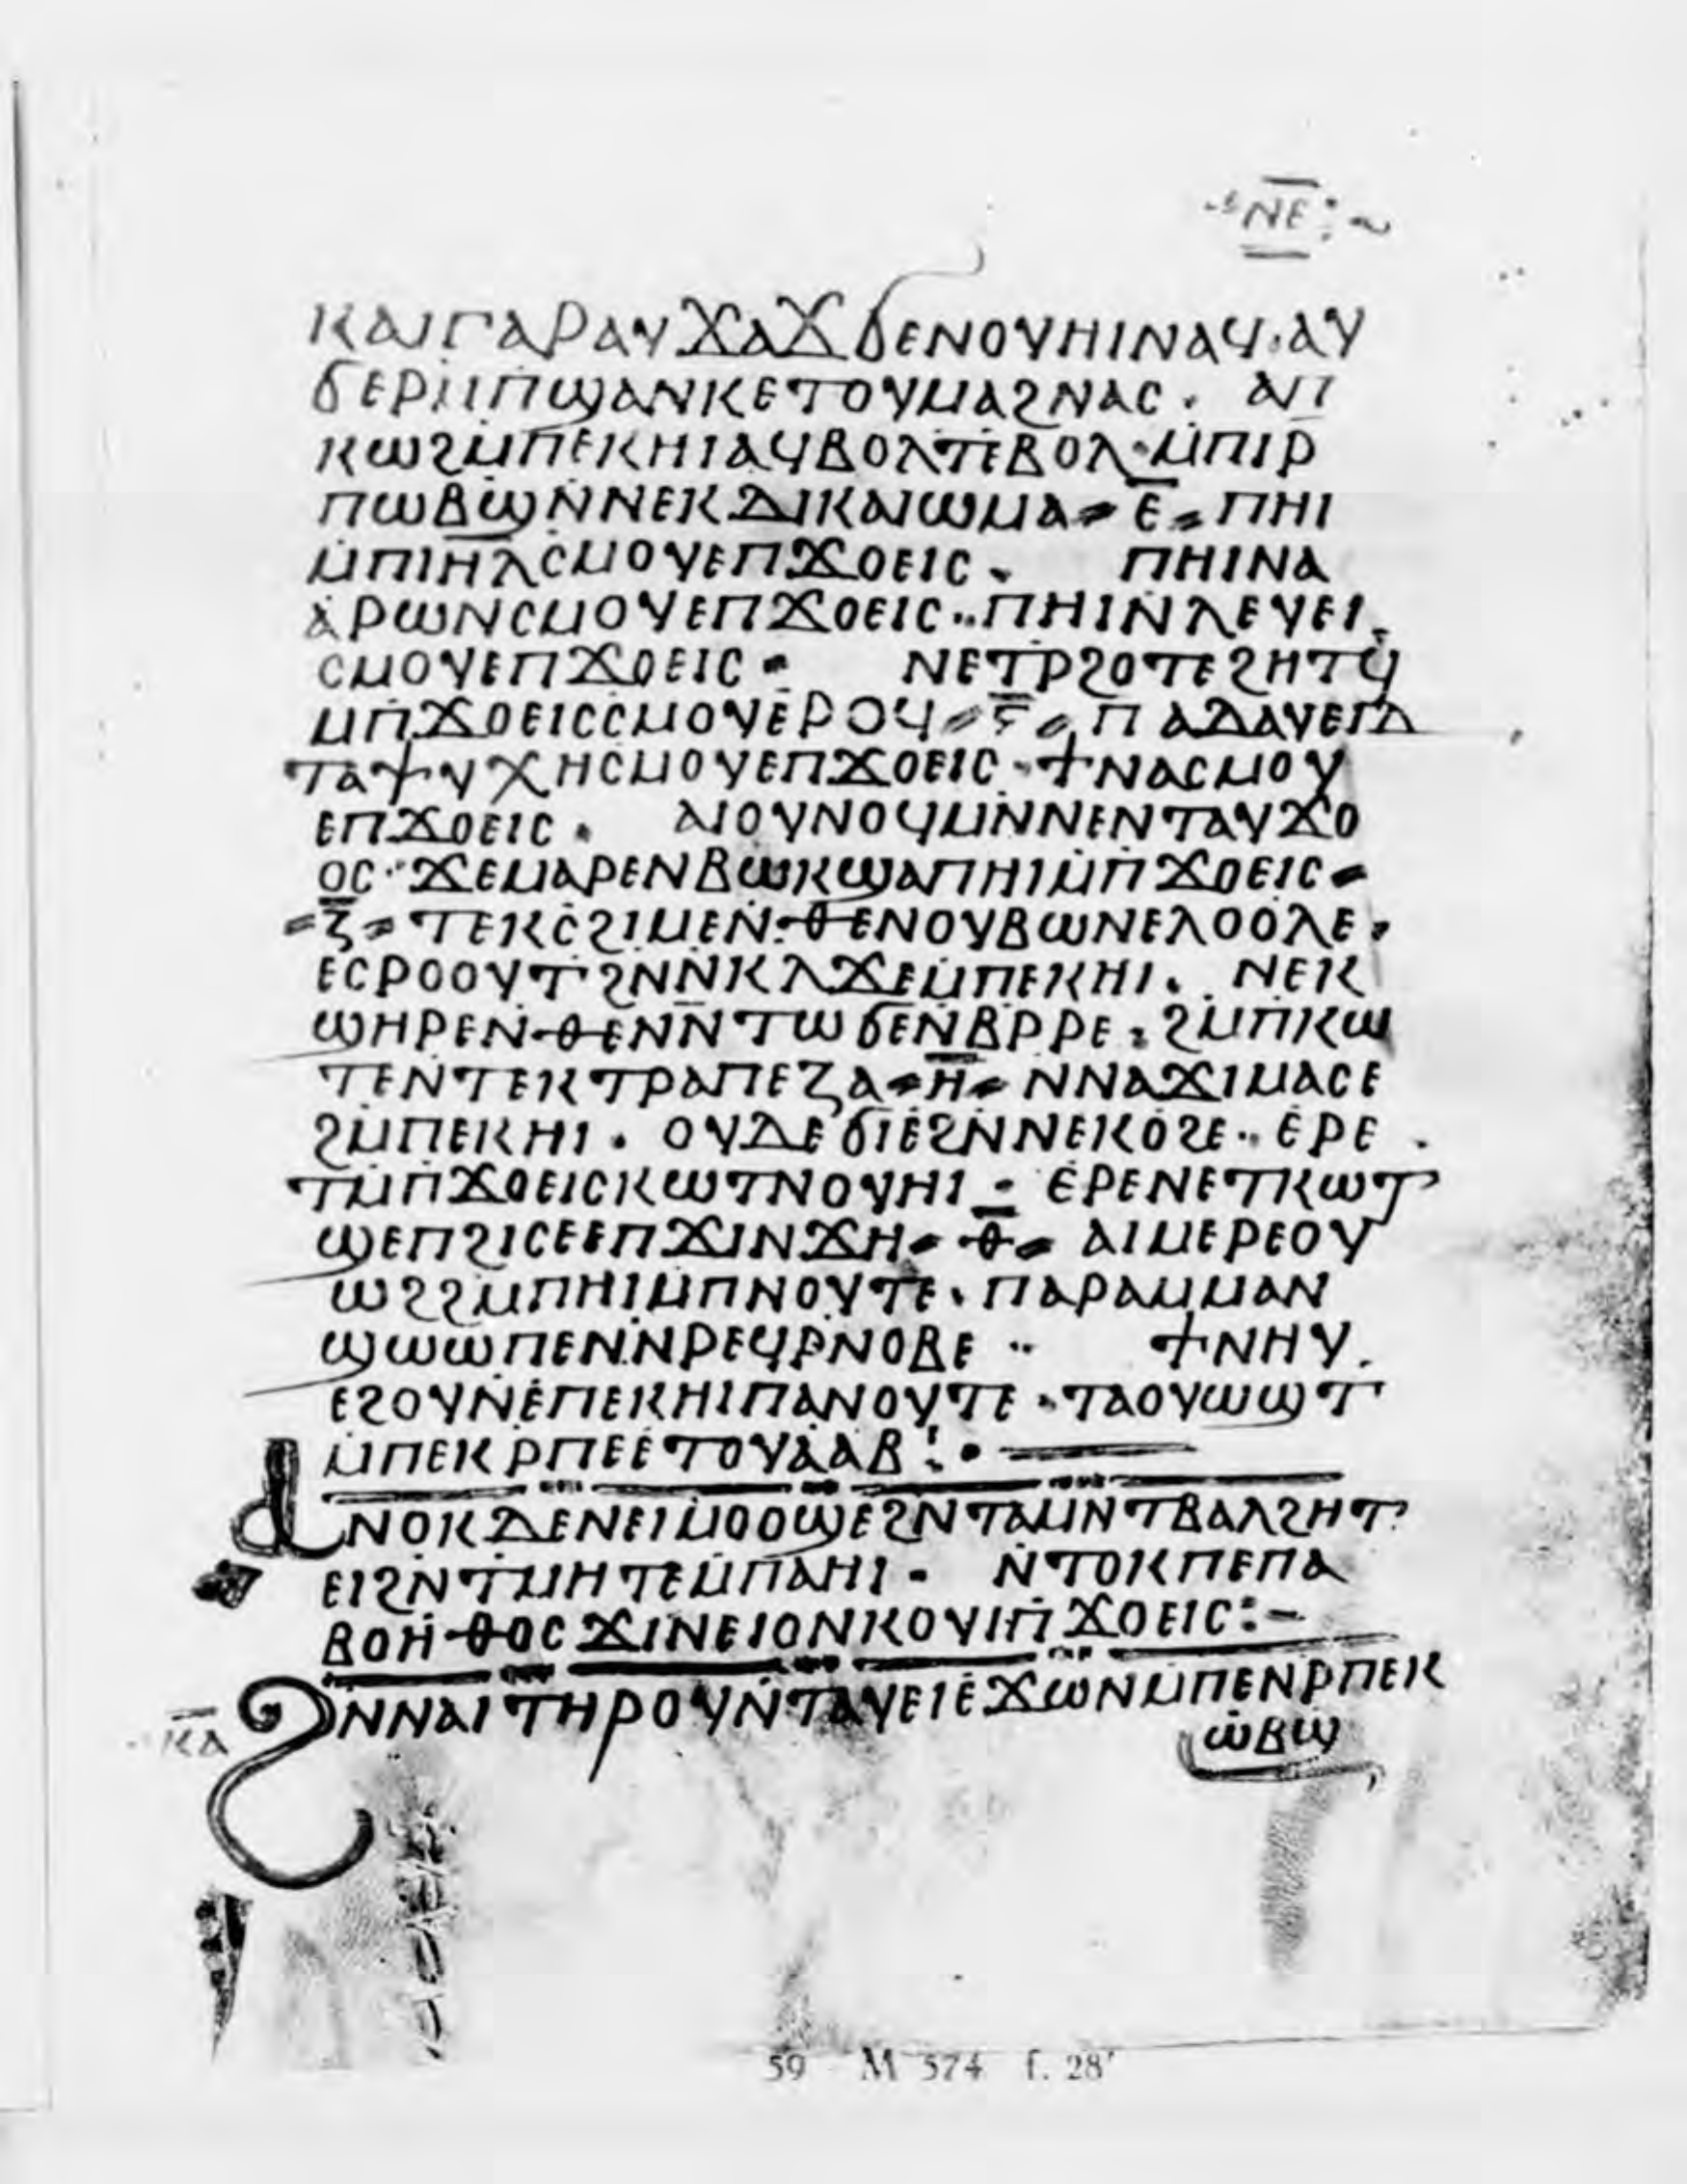 ⲛ̅ⲉ̅
ⲕⲁⲓⲅⲁⲣⲁⲩϫⲁϫϭⲉⲛⲟⲩⲏⲓⲛⲁϥ·ⲁⲩ
ϭⲉⲣⲙⲡϣⲁⲛⲕⲉⲧⲟⲩⲙⲁϩⲛⲁⲥ· ⲁⲡ
ⲕⲱϩⲙⲡⲉⲕⲏⲓⲁϥⲃⲟⲗⲧⲉⲃⲟⲗ·ⲙⲡⲓⲣ
ⲡⲱⲃϣⲛⲛⲉⲕⲇⲓⲕⲁⲓⲱⲙⲁ⸗ⲉ̅⸗ⲡⲏⲓ
ⲙⲡⲓⲏⲗⲥⲙⲟⲩⲉⲡϫⲟⲉⲓⲥ· ⲡⲏⲓⲛⲁ
ⲁⲣⲱⲛⲥⲙⲟⲩⲉⲡϫⲟⲉⲓⲥ··ⲡⲏⲓⲛⲗⲉⲩⲉⲓ·
ⲥⲙⲟⲩⲉⲡϫⲟⲉⲓⲥ· ⲛⲉⲧⲣϩⲟⲧⲉϩⲏⲧϥ
ⲙⲡϫⲟⲉⲓⲥⲥⲙⲟⲩⲉⲣⲟϥ⸗ⲋ̅⸗ⲡⲁⲇⲁⲩⲉⲓⲇ
ⲧⲁⲯⲩⲭⲏⲥⲙⲟⲩⲉⲡϫⲟⲉⲓⲥ·ϯⲛⲁⲥⲙⲟⲩ
ⲉⲡϫⲟⲉⲓⲥ· ⲁⲓⲟⲩⲛⲟϥⲙⲛⲛⲉⲛⲧⲁⲩϫⲟ
ⲟⲥ·ϫⲉⲙⲁⲣⲉⲛⲃⲱⲕϣⲁⲡⲏⲓⲙⲡϫⲟⲉⲓⲥ⸗
⸗ⲍ̅⸗ⲧⲉⲕⲥϩⲓⲙⲉⲛ·ⲑⲉⲛⲟⲩⲃⲱⲛⲉⲗⲟⲟⲗⲉ·
ⲉⲥⲣⲟⲟⲩⲧϩⲛⲛⲕⲗϫⲉⲙⲡⲉⲕⲏⲓ· ⲛⲉⲕ
ϣⲏⲣⲉⲛⲑⲉⲛⲛⲧⲱϭⲉⲛⲃⲣⲣⲉ·ϩⲙⲡⲕⲱ
ⲧⲉⲛⲧⲉⲕⲧⲣⲁⲡⲉⲍⲁ⸗ⲏ̅⸗ⲛⲛⲁϫⲓⲙⲁⲥⲉ
ϩⲙⲡⲉⲕⲏⲓ· ⲟⲩⲇⲉϭⲓⲉϩⲛⲛⲉⲕⲟϩⲉ··ⲉⲣⲉ
ⲧⲙⲡϫⲟⲉⲓⲥⲕⲱⲧⲛⲟⲩⲏⲓ· ⲉⲣⲉⲛⲉⲧⲕⲱⲧ
ϣⲉⲡϩⲓⲥⲉⲉⲡϫⲓⲛϫⲏ⸗ⲑ̅⸗ ⲁⲓⲙⲉⲣⲉⲟⲩ
ⲱϩϩⲙⲡⲏⲓⲙⲡⲛⲟⲩⲧⲉ·ⲡⲁⲣⲁⲙⲙⲁⲛ
ϣⲱⲱⲡⲉⲛⲛⲣⲉϥⲣⲛⲟⲃⲉ·· ϯⲛⲏⲩ·
ⲉϩⲟⲩⲛⲉⲡⲉⲕⲏⲓⲡⲁⲛⲟⲩⲧⲉ·ⲧⲁⲟⲩⲱϣⲧ
ⲙⲡⲉⲕⲣⲡⲉⲉⲧⲟⲩⲁⲁⲃ:·
ⲁⲛⲟⲕⲇⲉⲛⲉⲓⲙⲟⲟϣⲉϩⲛⲧⲁⲙⲛⲧⲃⲁⲗϩⲏⲧ
ⲉⲓϩⲛⲧⲙⲏⲧⲉⲙⲡⲁⲏⲓ· ⲛⲧⲟⲕⲡⲉⲡⲁ
ⲃⲟⲏⲑⲟⲥϫⲓⲛⲉⲓⲟⲛⲕⲟⲩⲓⲡϫⲟⲉⲓⲥ:–
ⲕ̅ⲁ̅ ϩⲛⲛⲁⲓⲧⲏⲣⲟⲩⲛⲧⲁⲩⲉⲓⲉϫⲱⲛⲙⲡⲉⲛⲣⲡⲉⲕ
ⲱⲃϣ
59 M 574 f. 28ʳ